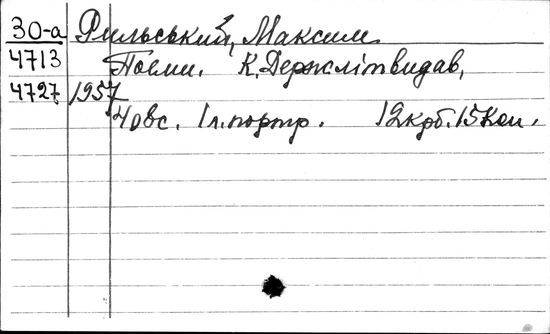 30-а Рильський, Максим
4713 Поеми. К, Держлітвидав,
4727 1957
40вс. 1 л. портр. 12крб. 15коп.